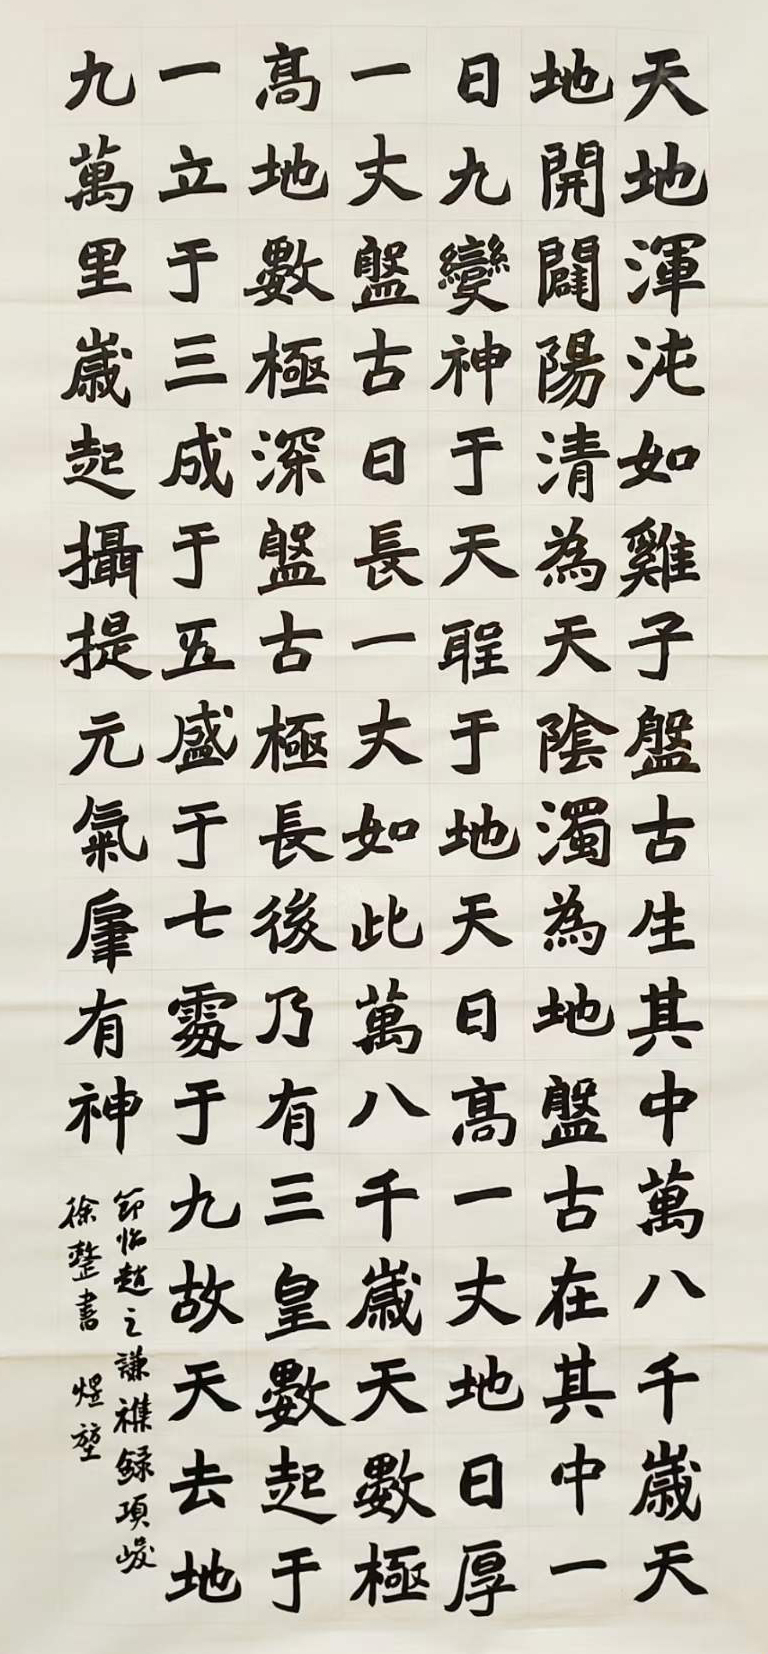 天地渾沌如雞子盤古生其中萬八千歲天
地開闢陽清為天陰濁為地盤古在其中一
日九變神于天聖于地天日高一丈地日厚
一丈盤古日長一丈如此萬八千歲天數極
高地數極深盤古極長後乃有三皇數起于
一立于三成于五盛于七處于九故天去地
九萬里歲起攝提元氣肇有神
節臨趙之謙襍錄項峻
徐整書 煜堃